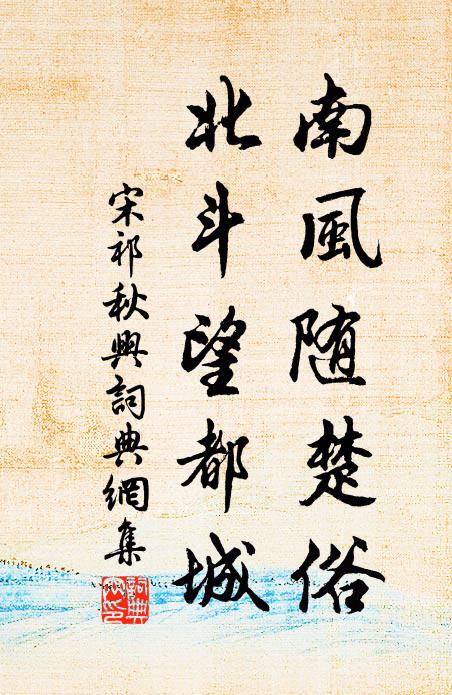 南風随楚俗
北斗望都城
宋祁秋興詞典網集